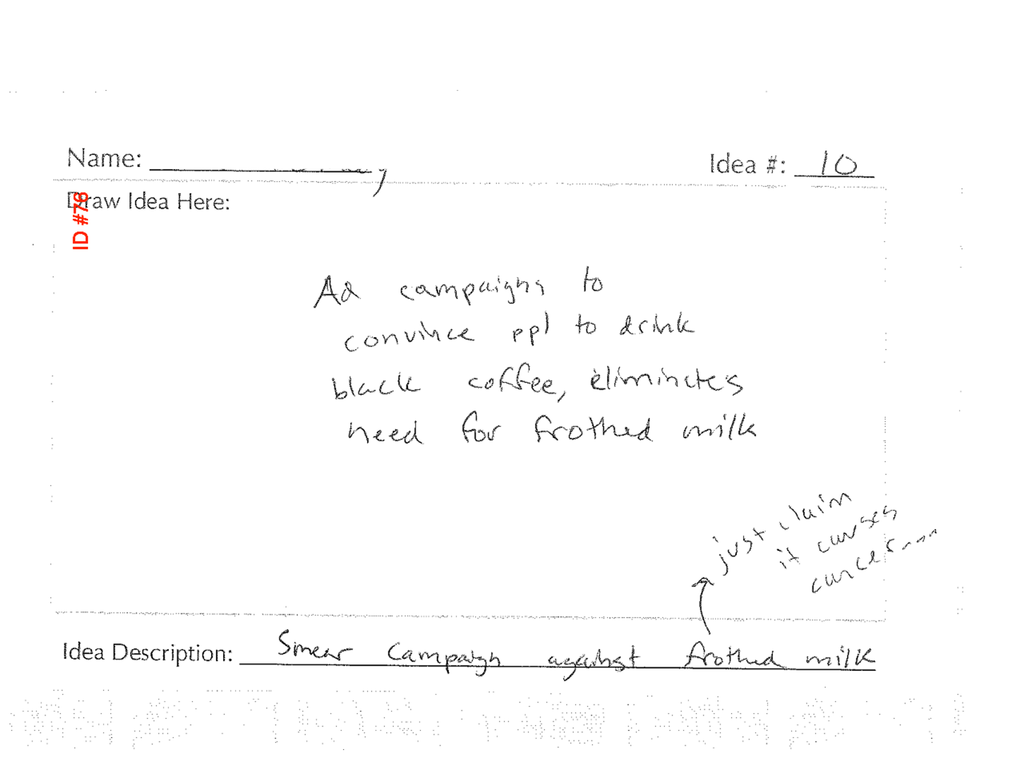 Name:
Idea #: 10
ID #78
Draw Idea Here:
Ad campaigns to
convince ppl to drink
black coffee, eliminates
need for frothed milk
just claim
it causes
cancer....
Idea Description: Smear Campaign against frothed milk